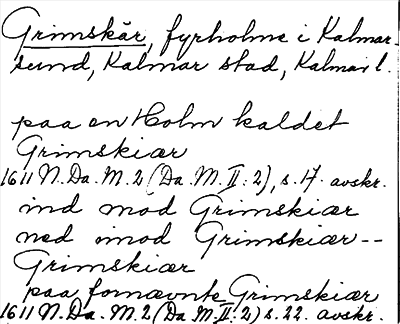 Grimskär, fyrholme i Kalmar-
sund, Kalmar stad, Kalmar l.
paa en Holm kaldet
Grimskiær
1611 N. Da. M. 2 (Da. M. II: 2), s. 17. avskr.
ind mod Grimskiær
ned imod Grimskiær--
Grimskiær
paa fornævnte Grimskiær
1611 N. Da. M. 2 (Da. M. II: 2) s. 22. avskr.